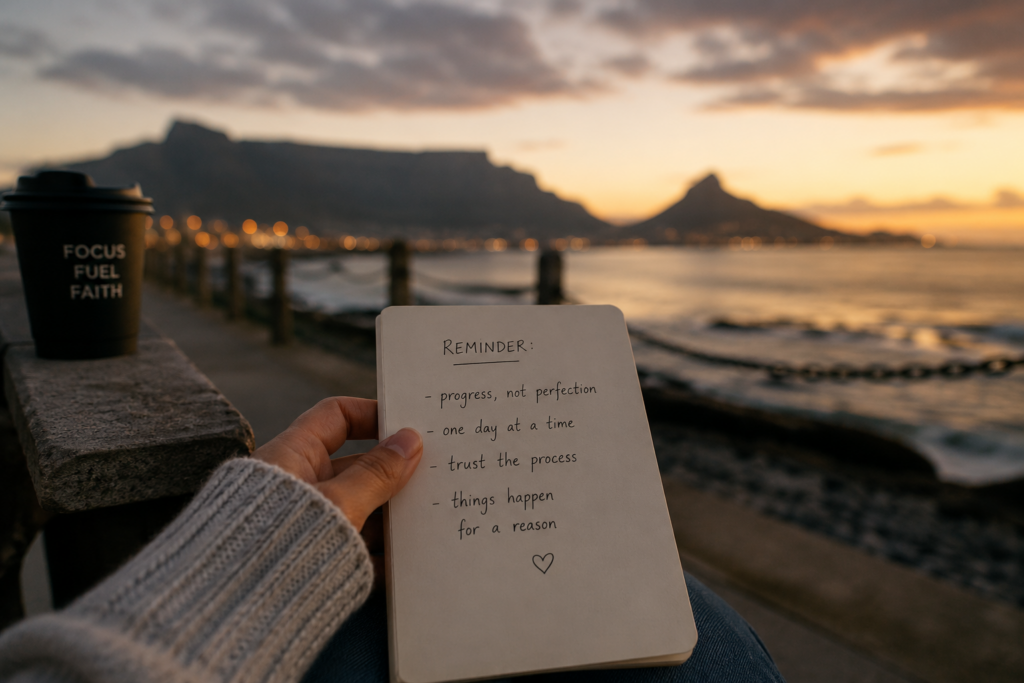 FOCUS
FUEL
FAITH
REMINDER:
- progress, not perfection
- one day at a time
- trust the process
- things happen
for a reason